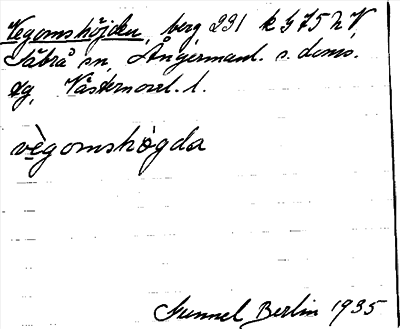 Vegomshöjden, berg 231 k § 75 h V,
Säbrå sn, Ångermanl. s. doms.
dg, Västernorrl. l.
vègomshögda
Gunnel Berlin 1935